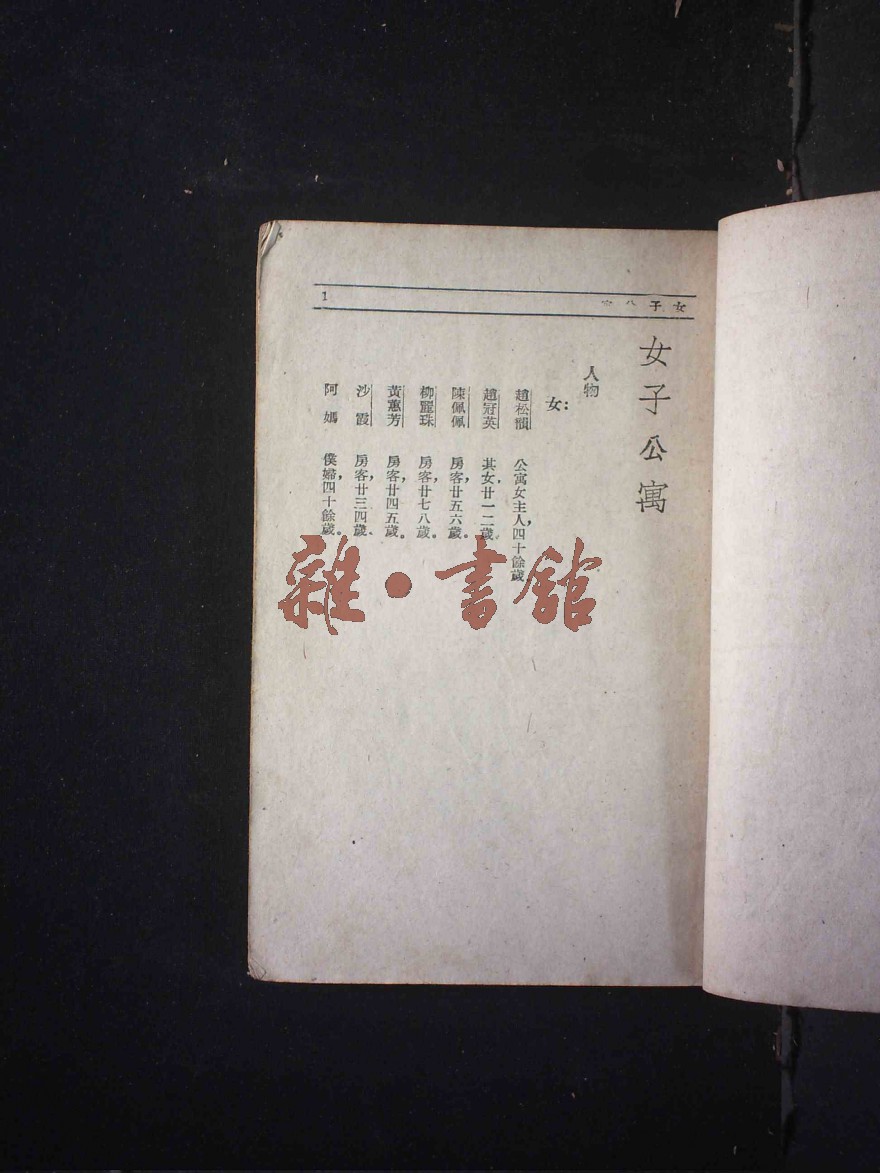 女子公寓
1
女子公寓
人物
女：
趙松韻 公寓女主人，四十餘歲
趙冠英 其女，廿一二歲。
陳佩佩 房客，廿五六歲。
柳麗珠 房客，廿七八歲。
黃蕙芳 房客，廿四五歲。
沙霞 房客，廿三四歲、
阿媽 僕婦，四十餘歲。
雜·書館